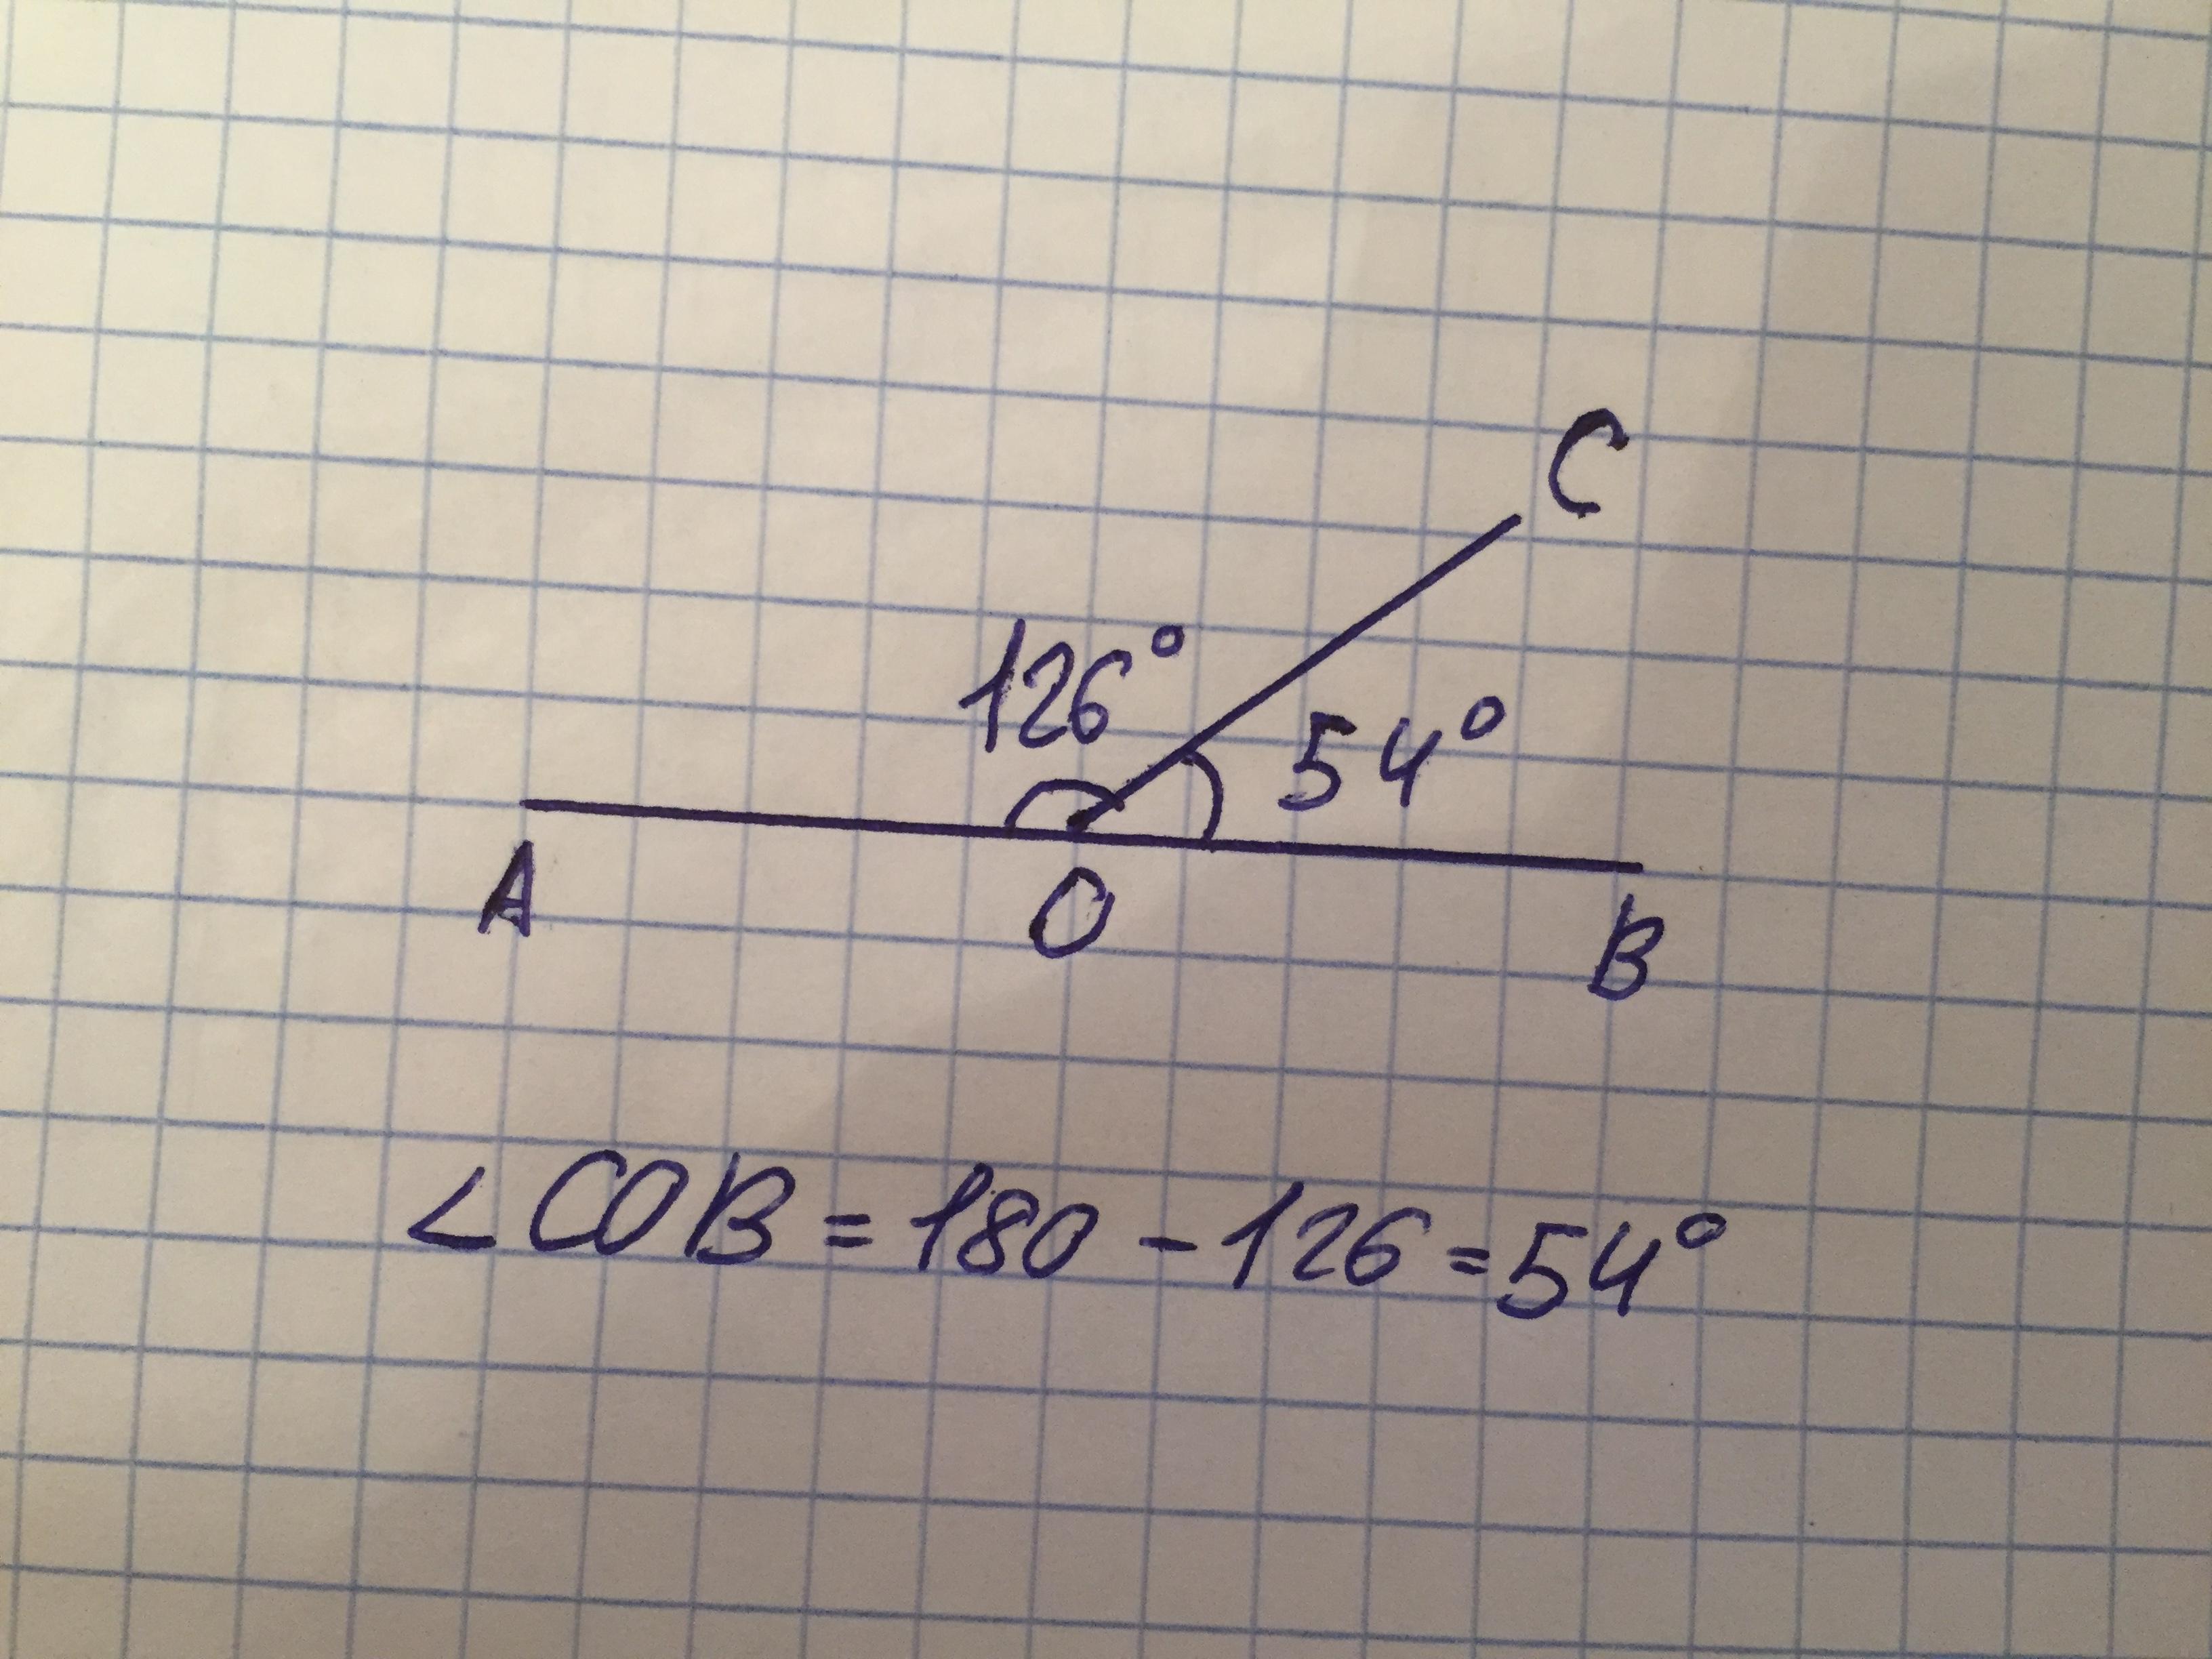 C
126°
54°
A O B
∠COB = 180 - 126 = 54°